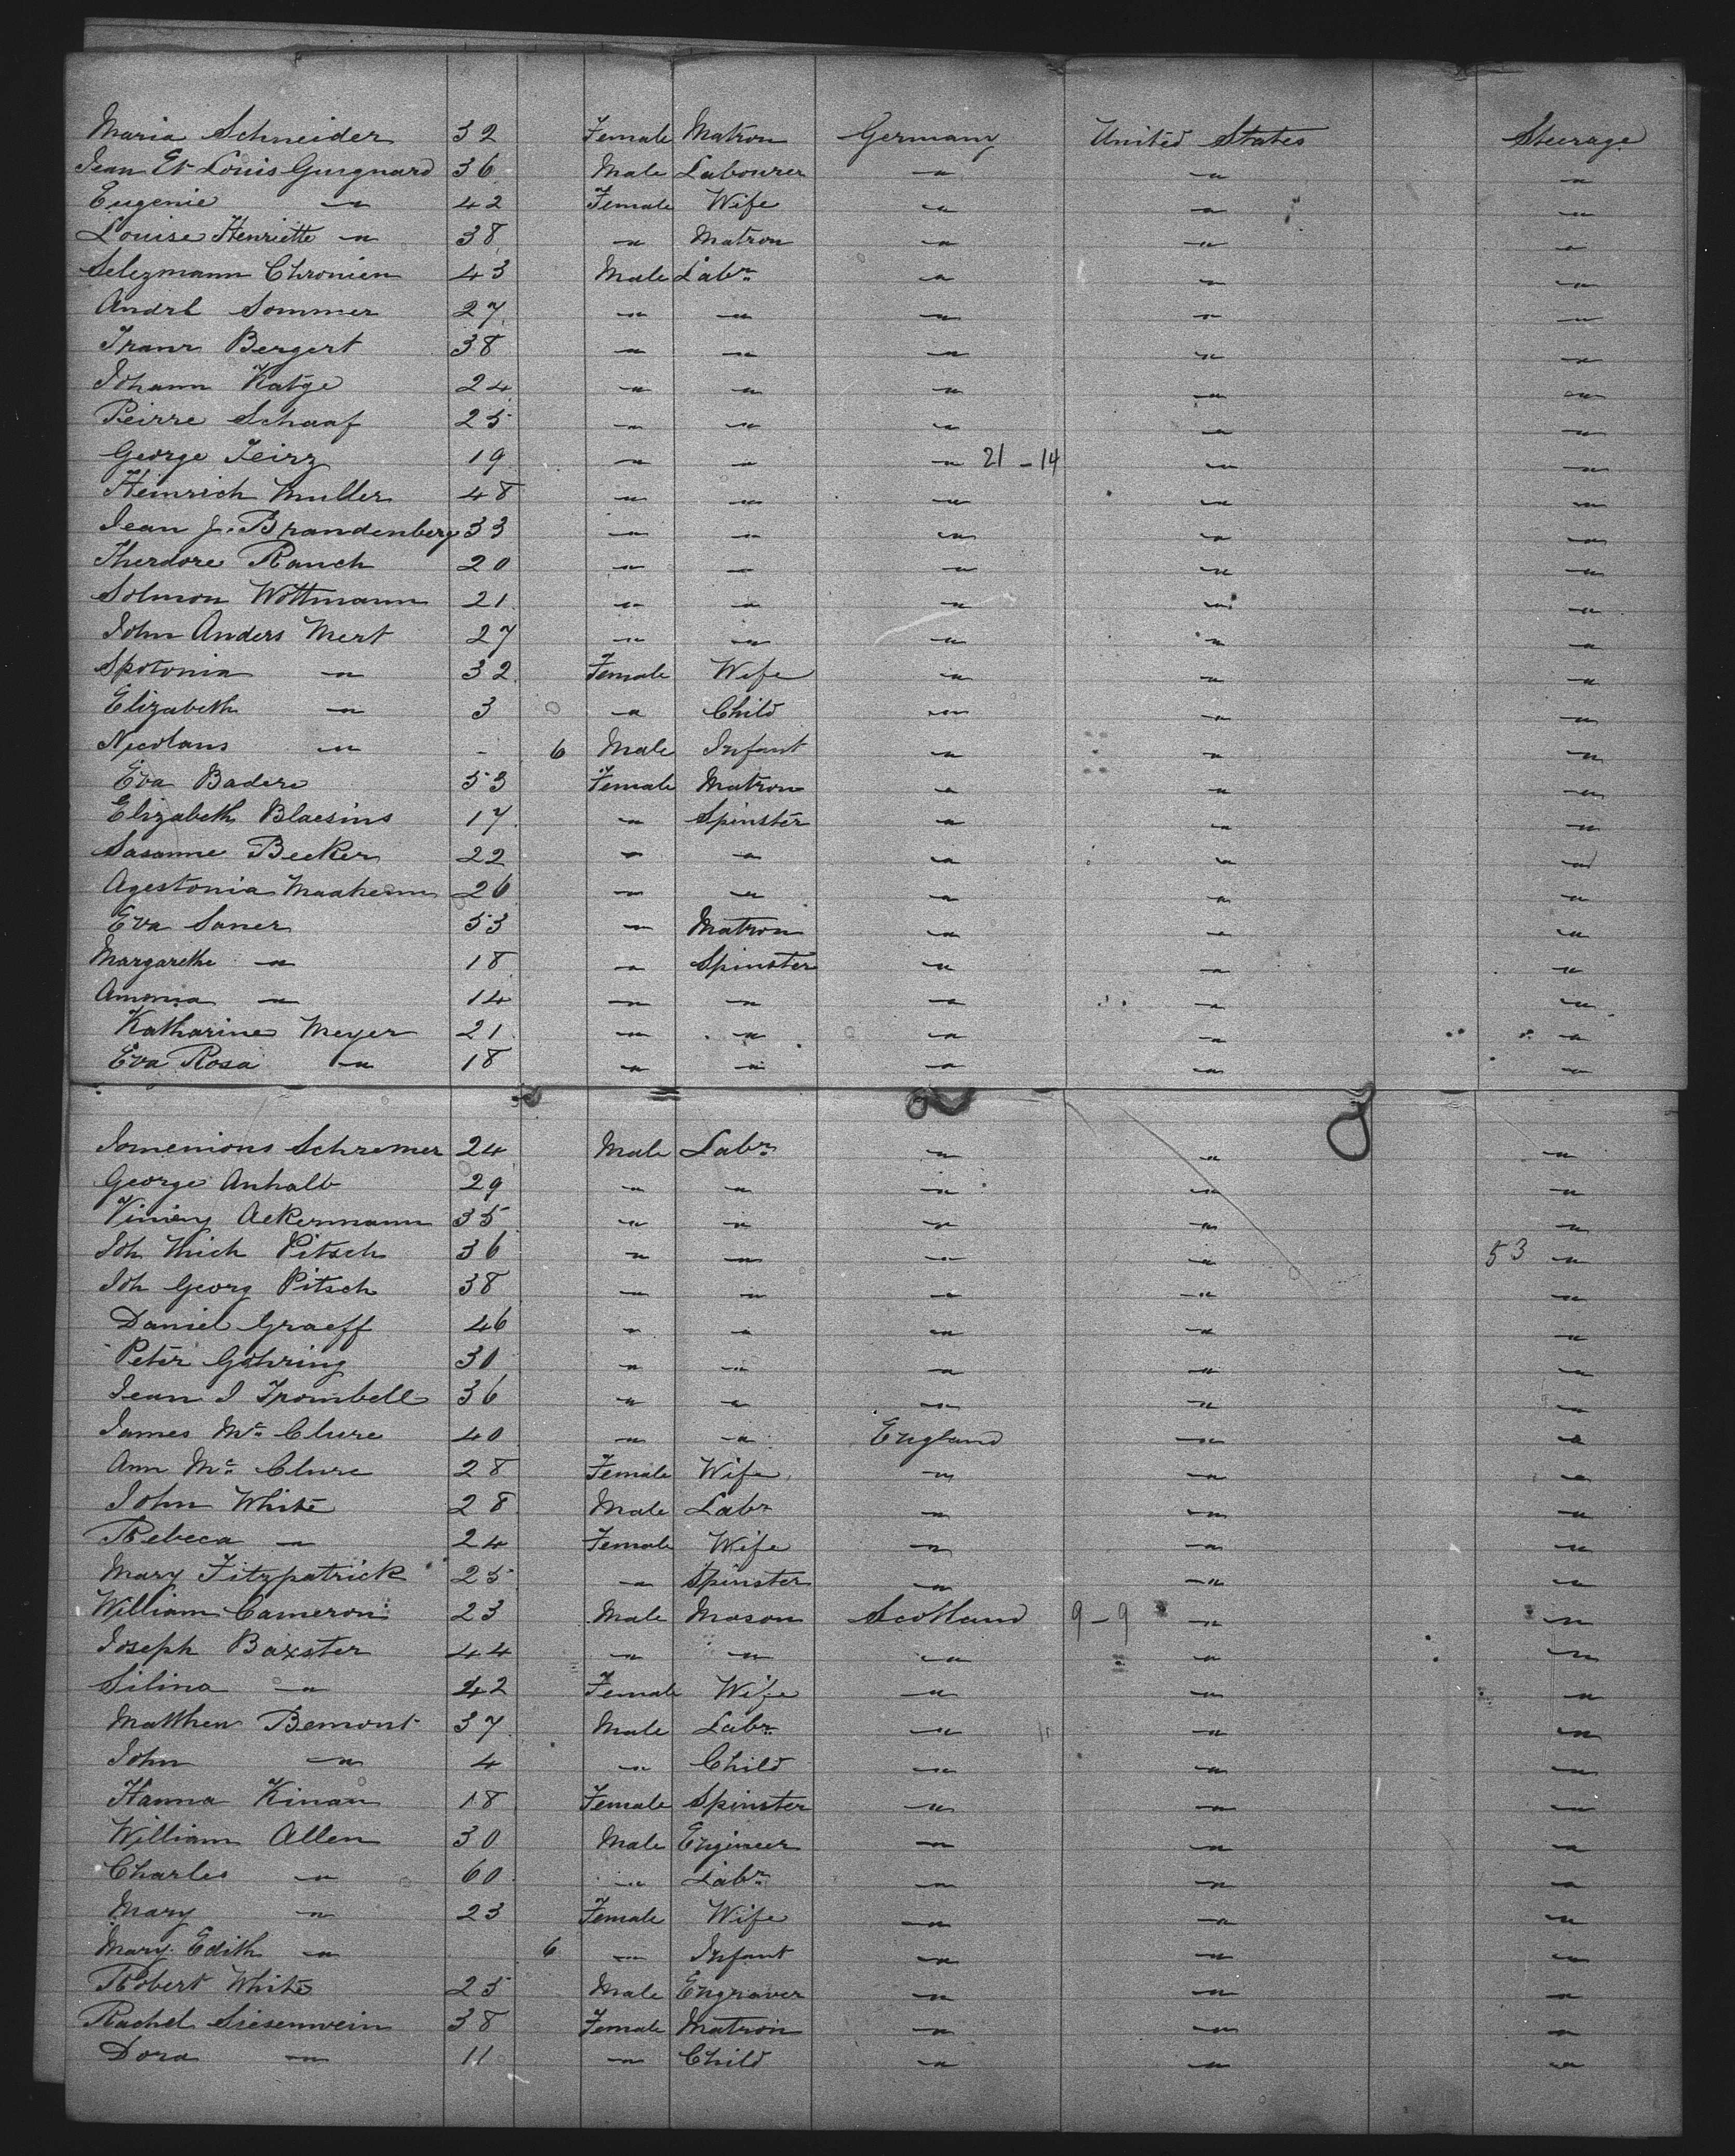 Maria Schneider 32 Female Matron Germany United States Steerage
Jean Et Louis Guignard 36 Male Labourer " " "
Eugenie " 42 Female Wife " " "
Louise Henriette " 38 " Matron " " "
Selezmann Chronien 43 Male Labr " " "
Andrl Sommer 27 " " " " "
Franr Bergert 38 " " " " "
Johann Katge 24 " " " " "
Peirre Schaaf 25 " " " " "
George Feirz 19 " " " 21-14 " "
Heinrich Muller 48 " " " " "
Jean J. Brandenberg 33 " " " " "
Therdore Ranch 20 " " " " "
Solmon Wottmann 21 " " " " "
John Anders Mert 27 " " " " "
Spotonia " 32 Female Wife " " "
Elizabeth " 3 " Child " " "
Nicolaus " - 6 Male Infant " " "
Eva Badere 53 Female Matron " " "
Elizabeth Blaesins 17 " Spinster " " "
Sasanne Becker 22 " " " " "
Agestonia Maaheim 26 " " " " "
Eva Saner 53 " Matron " " "
Margarethe " 18 " Spinster " " "
Amonia " 14 " " " " "
Katharine Meyer 21 " " " " "
Eva Rosa " 18 " " " " "
Schremer 24 Male Labr " " "
George Anhalt 29 " " " " "
Ackermann 35 " " " " "
Joh Pitsch 36 " " " " 53 "
Joh Georg Pitsch 38 " " " " "
Daniel Graeff 46 " " " " "
Peter Gohring 30 " " " " "
Jean J Trombell 36 " " " " "
James Mc Clure 40 " " England " "
Ann Mc Clure 28 Female Wife " " "
John White 28 Male Labr " " "
Rebeca " 24 Female Wife " " "
Mary Fitzpatrick 25 " Spinster " " "
William Cameron 23 Male Mason Scotland 9-9 " "
Joseph Baxster 44 " " " " "
Silina " 42 Female Wife " " "
Matthew Bemont 37 Male Labr " " "
John " 4 " Child " " "
Hanna Kinan 18 Female Spinster " " "
William Allen 30 Male Engineer " " "
Charles " 60 " Labr " " "
Mary " 23 Female Wife " " "
Mary Edith " 6 " Infant " " "
Robert White 25 Male Engraver " " "
Rachel Siesenwein 38 Female Matron " " "
Dora " 11 " Child " " "